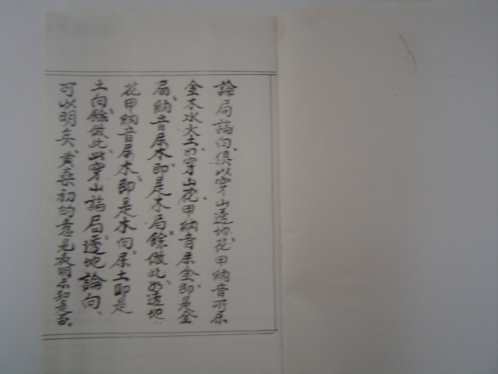 論局論向俱以穿山透地花甲納音所屬
金木水火土如穿山花甲納音屬金即是金
局納音屬木即是木局餘倣此如透地
花甲納音屬木即是木向屬土即是
土向餘倣此以穿山論局透地論向
可以明矣黃桑初的意見表明